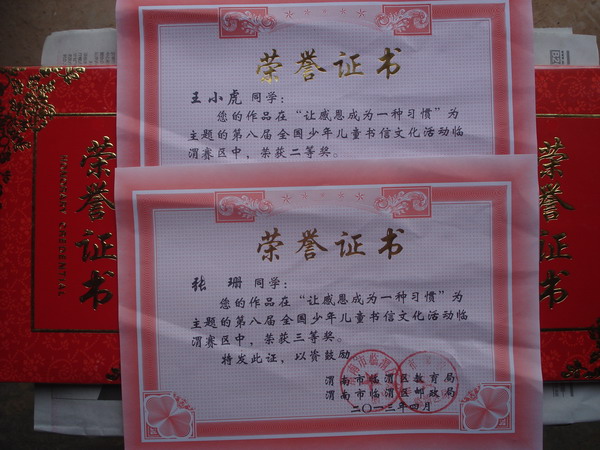 荣誉证书
王小虎 同学：
您的作品在“让感恩成为一种习惯”为
主题的第八届全国少年儿童书信文化活动临
渭赛区中，荣获二等奖。
荣誉证书
张 珊 同学：
您的作品在“让感恩成为一种习惯”为
主题的第八届全国少年儿童书信文化活动临
渭赛区中，荣获三等奖。
特发此证，以资鼓励
渭南市临渭区教育局
渭南市临渭区邮政局
二〇一三年四月
荣誉证书
HONORARY CREDENTIAL
荣誉证书